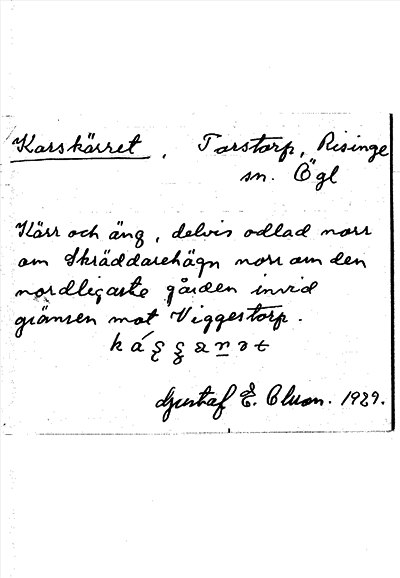 Karskärret, Torstorp, Risinge
sn. Ögl
Kärr och äng, delvis odlad norr
om Skräddarehägn norr om den
nordligaste gården invid
gränsen mot Viggestorp.
Gustaf E. 1929.